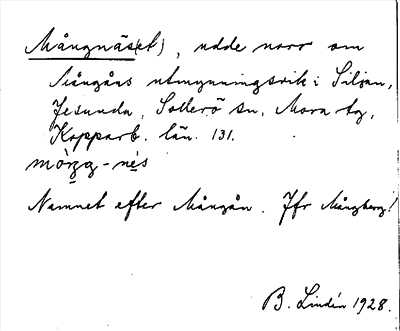 Mångnäs(et), udde norr om
Mångåns utmynningsvik i Siljan,
Jesunda, Sollerö sn, Mora tg,
Kopparb. län. 131.
mòrgg-nés
Namnet efter Mångån. Jfr Mångberg!
B. Lindén 1928.